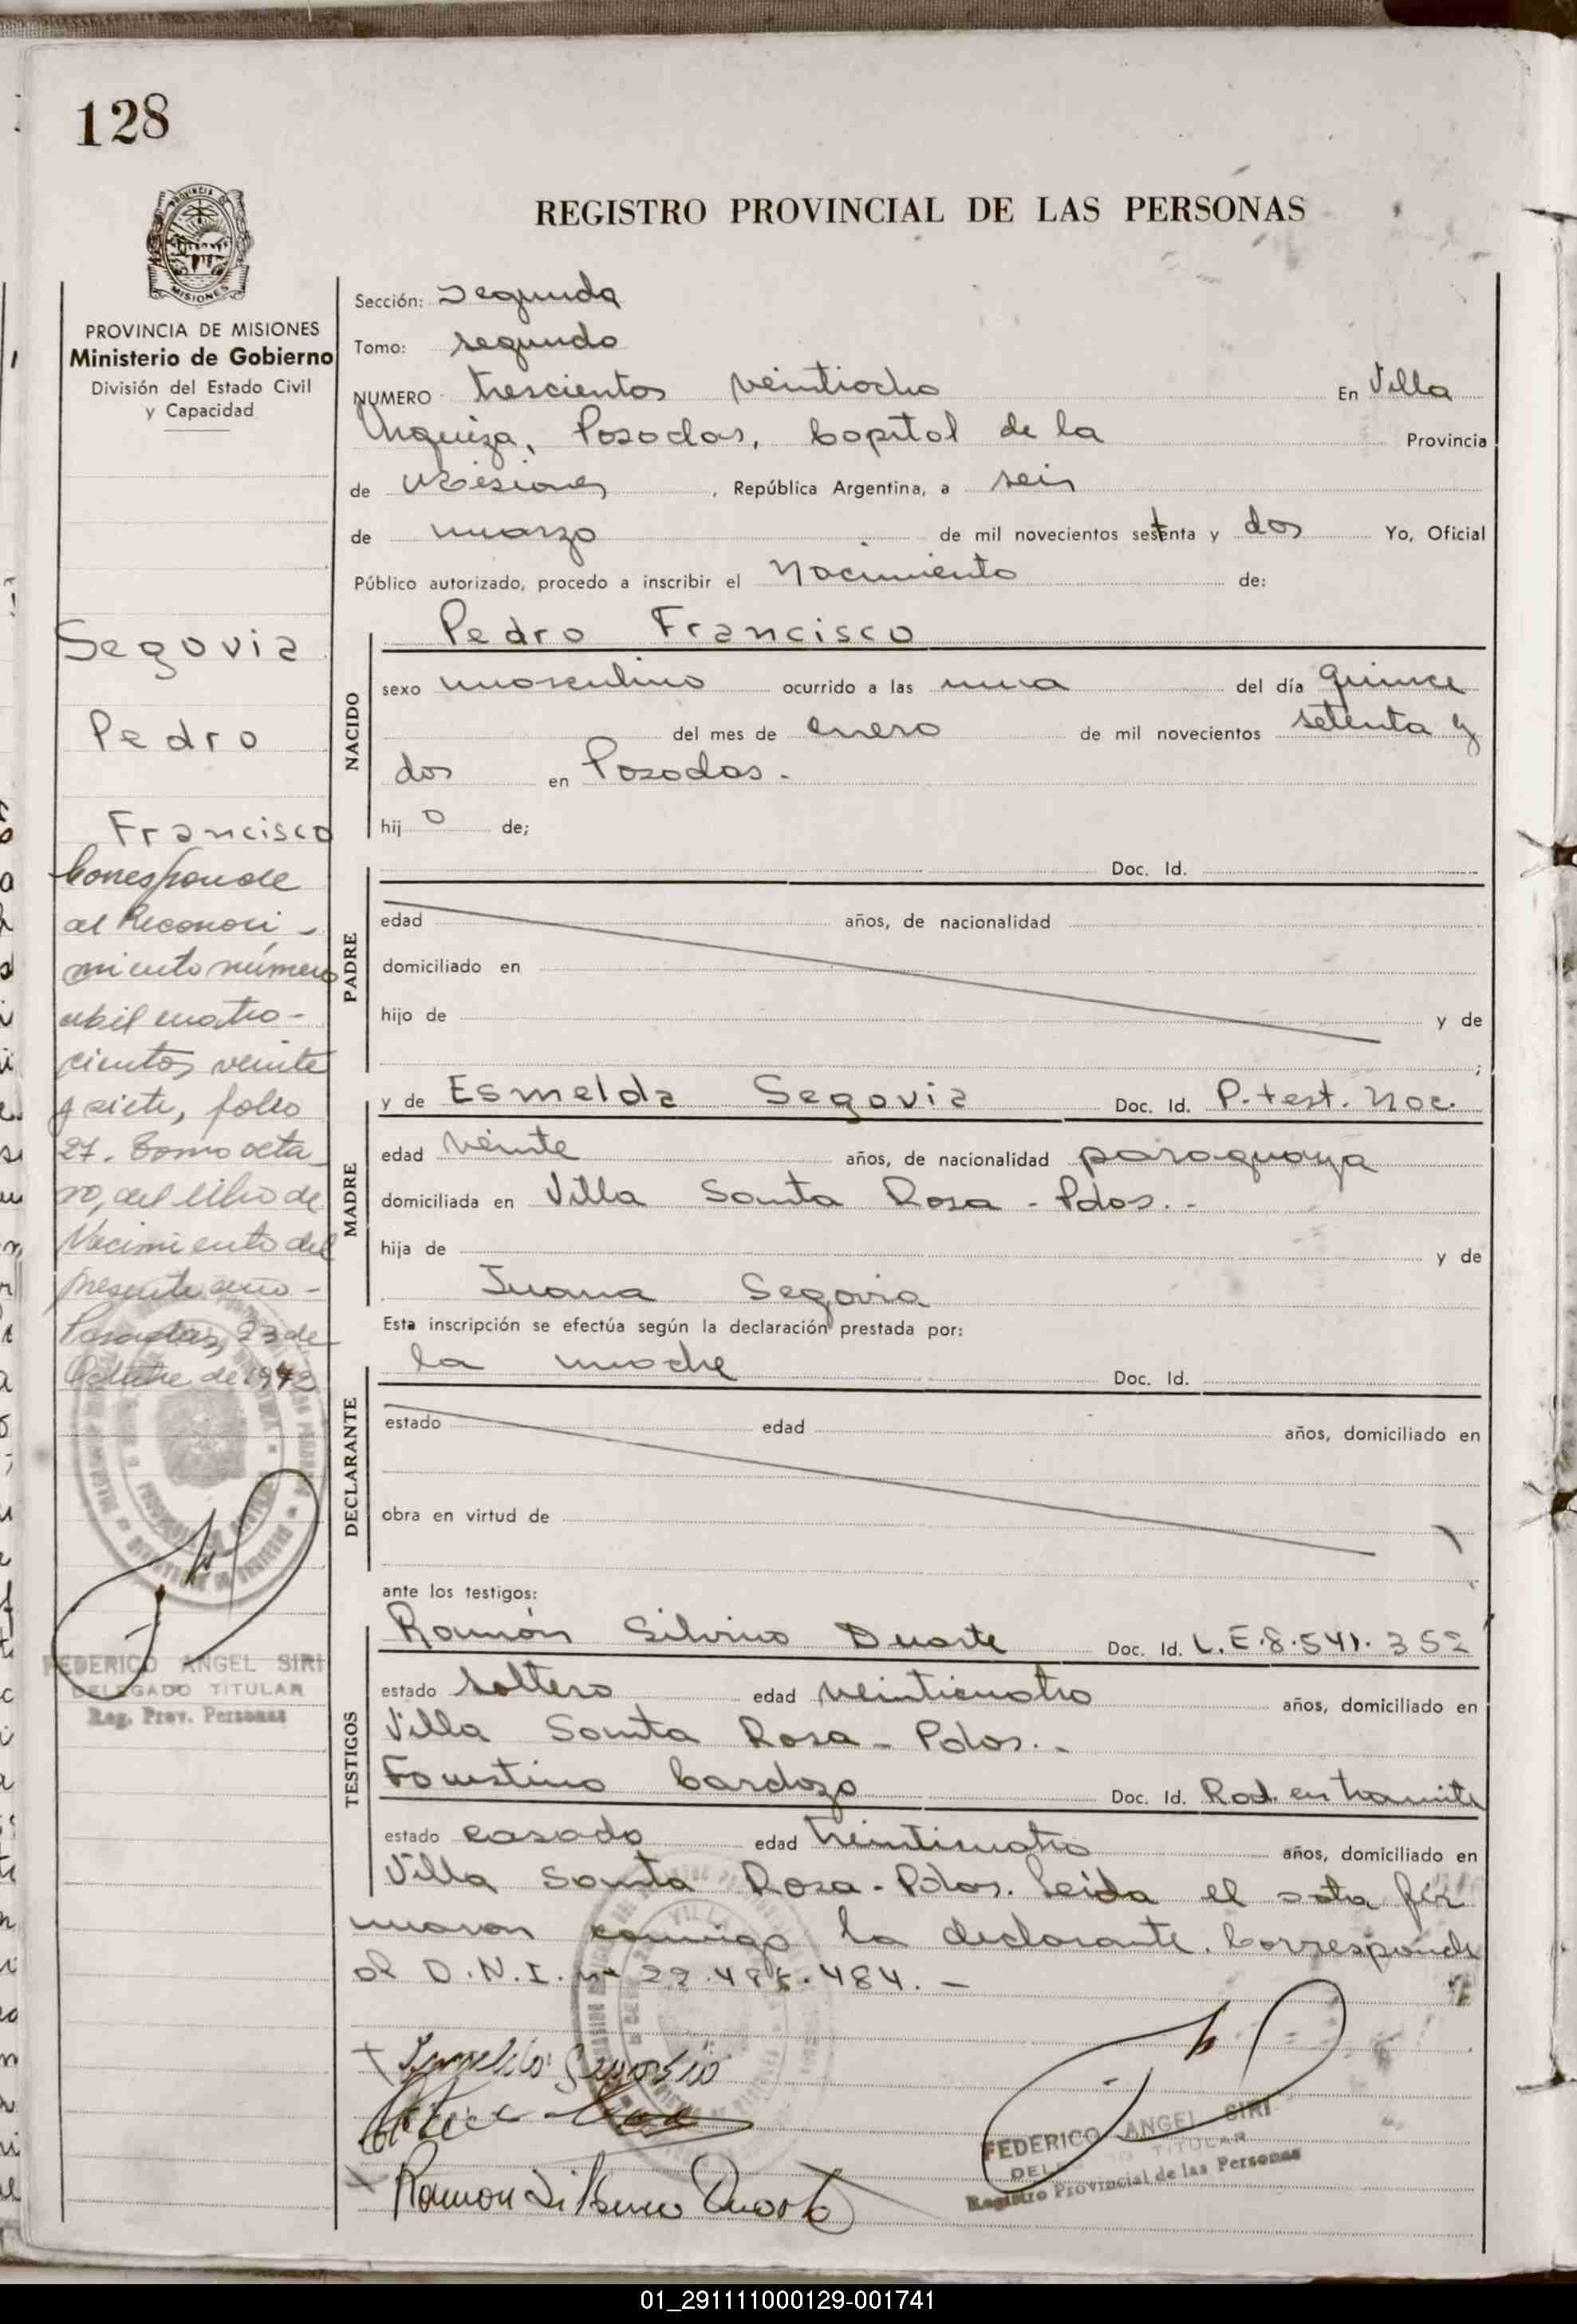 128
REGISTRO PROVINCIAL DE LAS PERSONAS
PROVINCIA
MISIONES
PROVINCIA DE MISIONES
Ministerio de Gobierno
División del Estado Civil
y Capacidad
Segovia
Pedro
Francisco
Corresponde
al Reconoci-
miento número
mil cuatro-
cientos veinte
y siete, folio
27. Tomo octa
vo, del libro de
Nacimiento del
presente año-
Posadas, 23 de
Octubre de 1972
FEDERICO ANGEL SIRI
DELEGADO TITULAR
Reg. Prov. Personas
Sección: Segunda
Tomo: segundo
NUMERO trescientos veintiocho En Villa
Urquiza, Posadas, Capital de la Provincia
de Misiones, República Argentina, a seis
de marzo de mil novecientos setenta y dos Yo, Oficial
Público autorizado, procedo a inscribir el Nacimiento de:
NACIDO
Pedro Francisco
sexo masculino ocurrido a las una del día quince
del mes de enero de mil novecientos setenta y
dos en Posadas.
hij o de;
PADRE
Doc. Id.
edad años, de nacionalidad
domiciliado en
hijo de y de
;
MADRE
y de Esmelda Segovia Doc. Id. P. test. Noc.
edad veinte años, de nacionalidad paraguaya
domiciliada en Villa Santa Rosa - Pdas.-
hija de y de
Juana Segovia
Esta inscripción se efectúa según la declaración prestada por:
DECLARANTE
la madre Doc. Id.
estado edad años, domiciliado en
obra en virtud de
ante los testigos:
TESTIGOS
Ramón Silvino Duarte Doc. Id. L.E.8.541.352
estado soltero edad veinticuatro años, domiciliado en
Villa Santa Rosa - Pdas.-
Faustino Cardozo Doc. Id. Rad. en tramite
estado casado edad treinticuatro años, domiciliado en
Villa Santa Rosa - Pdas. Leida el acta fir
maron conmigo la declarante. Corresponde
al D.N.I. nº 484.-
Segovia
Ramon Silvino Duarte
FEDERICO ANGEL SIRI
TITULAR
Registro Provincial de las Personas
01_291111000129-001741